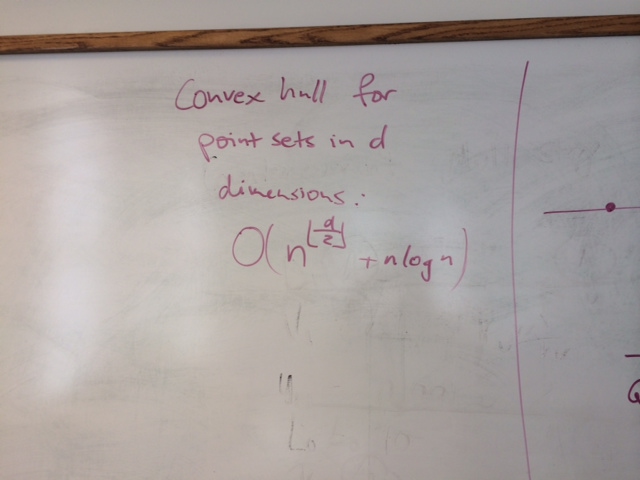 Convex hull for
point sets in d
dimensions:
O(n^⌊d/2⌋ + n log n)